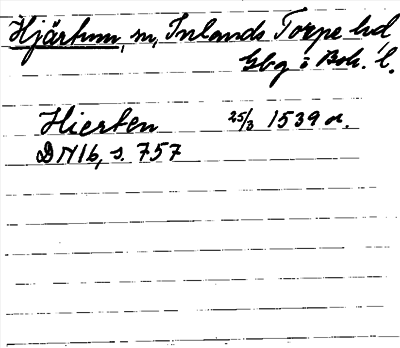 Hjärtum, sn, Inlands Torpe hd
Gbg o Boh. l.
Hierten 25/3 1539 a.
DN 16, s. 757